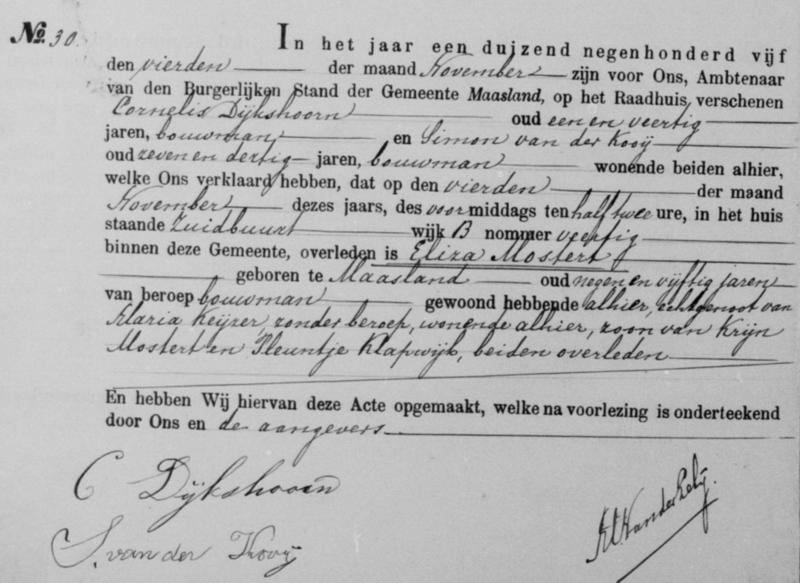 No. 30.
In het jaar een duizend negenhonderd vijf
den vierden der maand November zijn voor Ons, Ambtenaar
van den Burgerlijken Stand der Gemeente Maasland, op het Raadhuis, verschenen
Cornelis Dijkshoorn oud een en veertig
jaren, bouwman en Simon van der Kooij
oud zeven en dertig jaren, bouwman wonende beiden alhier,
welke Ons verklaard hebben, dat op den vierden der maand
November dezes jaars, des voormiddags ten half twee ure, in het huis
staande Zuidbuurt wijk B nommer veertig
binnen deze Gemeente, overleden is Eliza Mostert
geboren te Maasland oud negen en vijftig jaren
van beroep bouwman gewoond hebbende alhier, echtgenoot van
Maria Keijzer, zonder beroep, wonende alhier, zoon van Krijn
Mostert en Pleuntje Klapwijk, beiden overleden
En hebben Wij hiervan deze Acte opgemaakt, welke na voorlezing is onderteekend
door Ons en de aangevers
C Dijkshoorn
S. van der Kooij